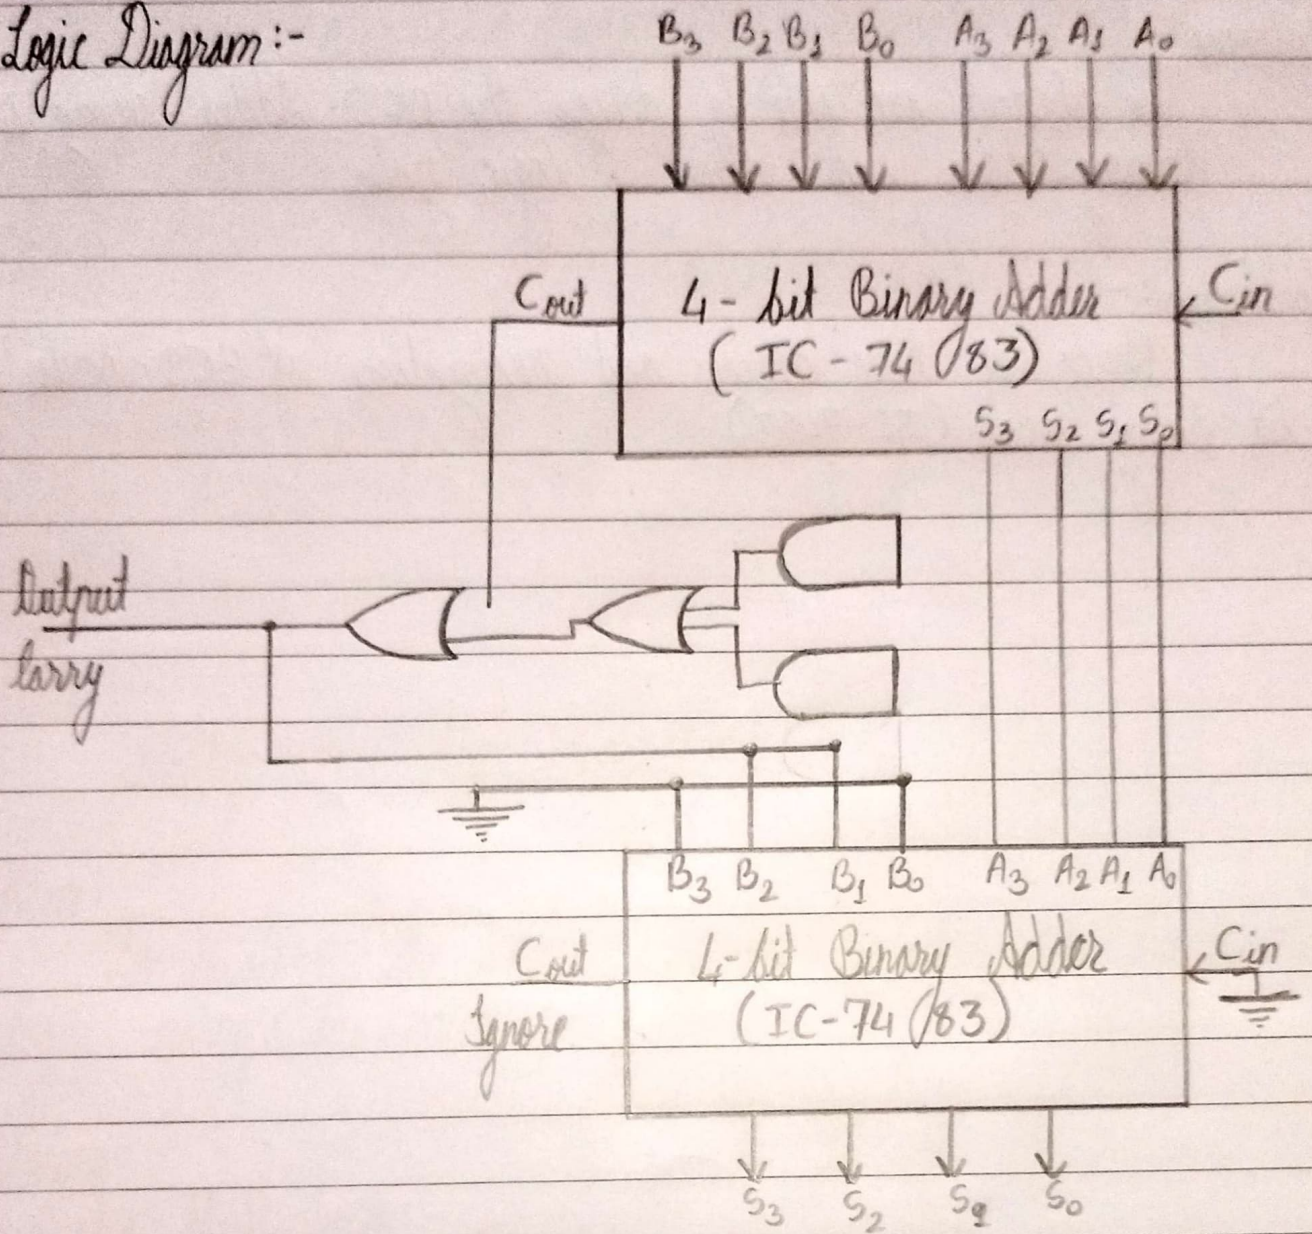 Logic Diagram :-
B3 B2 B1 B0 A3 A2 A1 A0
Cout
4-bit Binary Adder
Cin
(IC-74 83)
S3 S2 S1 S0
Output
Carry
B3 B2 B1 B0 A3 A2 A1 A0
Cout
4-bit Binary Adder
Cin
Ignore
(IC-74 83)
S3 S2 S1 S0